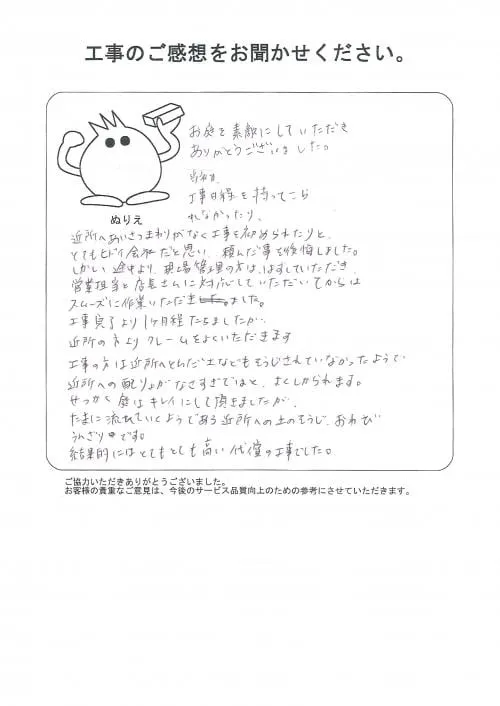 工事のご感想をお聞かせください。
お庭を素敵にしていただき
ありがとうございました。
当初は、
工事日程を持ってこら
れなかったり、
ぬりえ
近所へあいさつまわりがなく工事を始められたりと、
とてもヒドイ会社だと思い、頼んだ事を後悔しました。
しかし途中より、現場管理の方は、はずしていただき、
営業担当と店長さんに対応していただいてからは
スムーズに作業いただきました。
工事完了より1ヶ月程たちましたが、
近所の方よりクレームをよくいただきます
工事の方は近所へとんだ土などもそうじされていなかったようで
近所への配りょがなさすぎではと、よくしかられます。
せっかく庭はキレイにして頂きましたが、
たまに流れていくようである近所への土のそうじ、おわび
うんざりです。
結果的にはとてもとても高い代償の工事でした。
ご協力いただきありがとうございました。
お客様の貴重なご意見は、今後のサービス品質向上のための参考にさせていただきます。